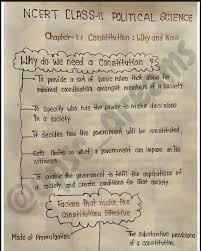 NCERT CLASS-11 POLITICAL SCIENCE
Chapter-1: Constitution: Why and How
Why do we need a Constitution?
To provide a set of basic rules that allow for
minimal coordination amongst members of a society.
To specify who has the power to make decisions
in a society.
It decides how the government will be constituted.
Sets limits on what a government can impose on its
citizens.
To enable the government to fulfill the aspirations of
a society and create conditions for a just society.
Factors that make the
Constitutions Effective
Mode of Promulgation
The Substantive provisions
of a constitution